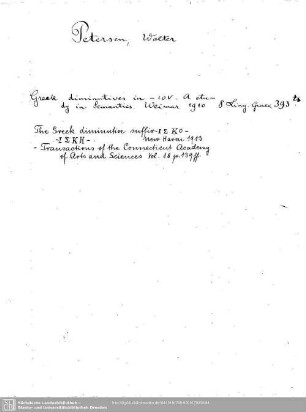 Petersen, Walter
Greek diminutives in -ιον. A stu-
dy in Semantics. Weimar 1910 8 Ling. Graec. 393
The Greek diminutive suffix -ΙΣΚΟ-
-ΙΣΚΗ-. New Haven 1913
- Transactions of the Connecticut Academy
of Arts and Sciences Vol. 18 p. 139 ff.